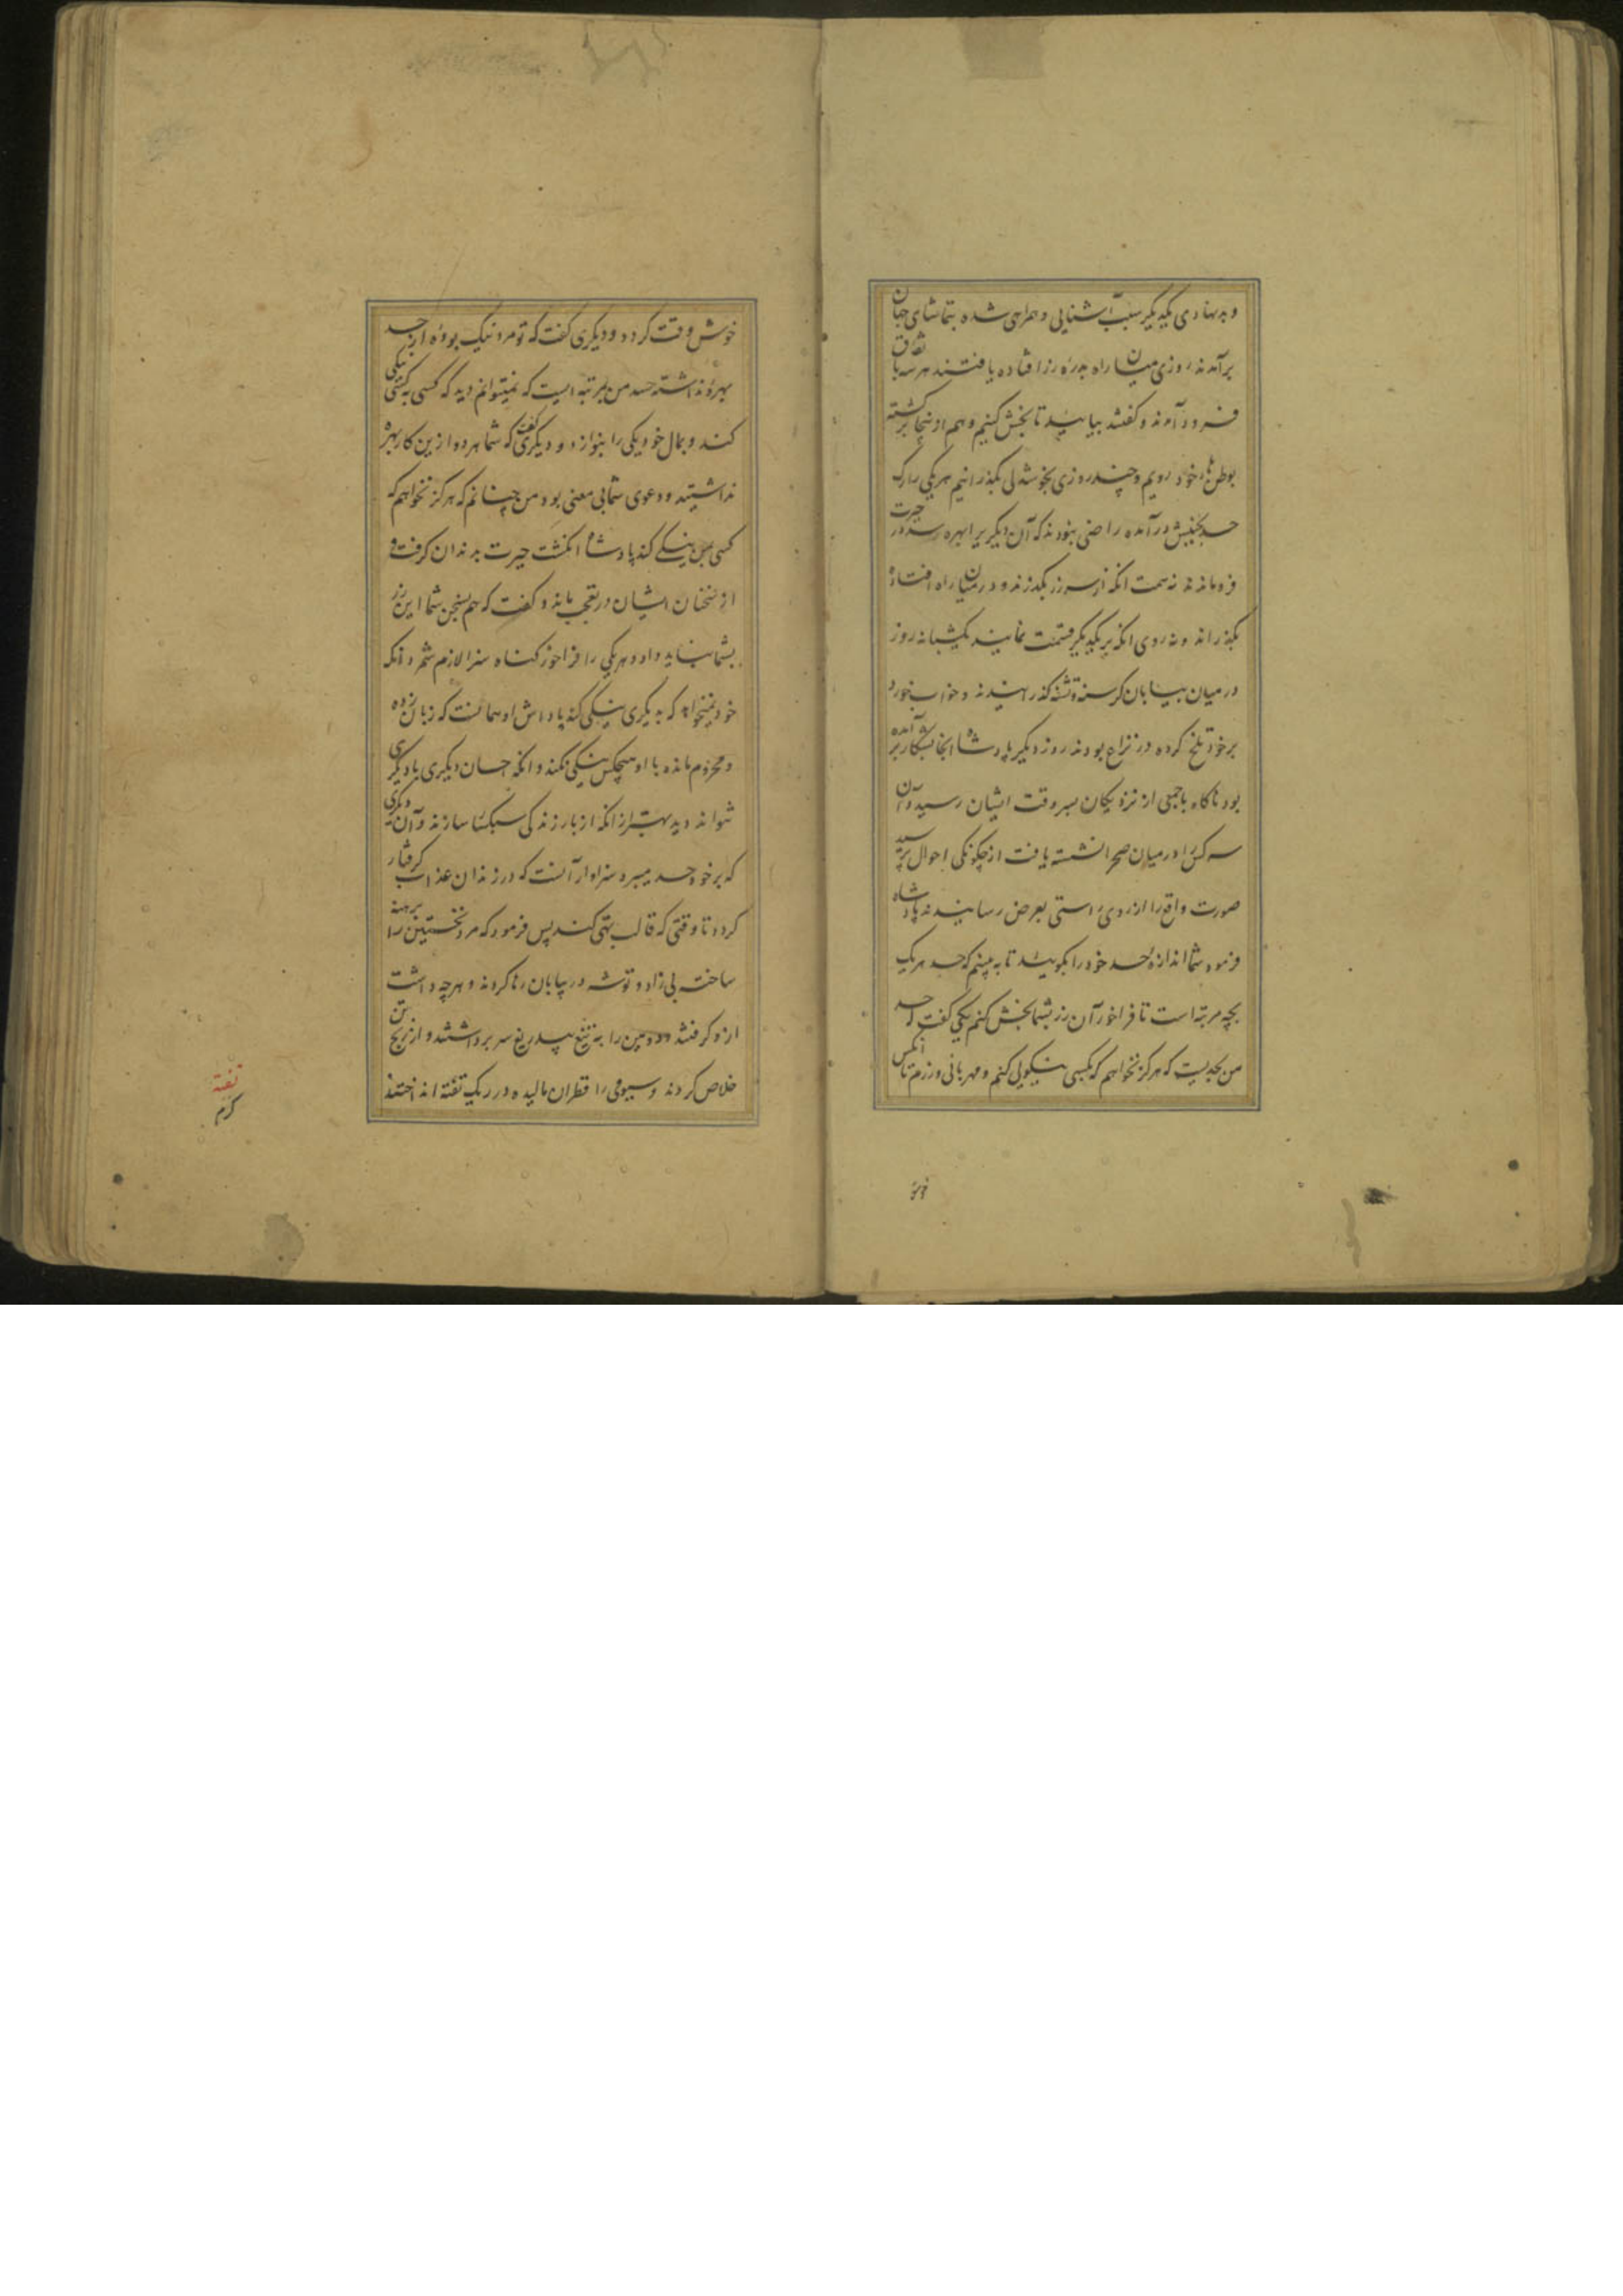 و بدنهادی یکدیگر سبب آشنایی و همراهی شده بتماشای جهان
برآمدند روزی میان راه بدرهٔ زر افتاده یافتند هر سه باتفاق
فرود آمدند و گفتند بیایید تا بخش کنیم و هم ازینجا برگشته
بوطن‌ها خود رویم و چند روزی بخوشدلی بگذرانیم هر یکی را رگ
حسد بجنبش درآمده راضی نبودند که آن دیگریرا بهره رسد در حیرت
فرو ماندند نه همت آنکه از سر زر بگذرند و در میان راه افتاده
بگذراند و نه روی آنکه بر یکدیگر قسمت نمایند یکشبانه روز
در میان بیابان گرسنه و تشنه گذرانیدند و خواب خورد
برخود تلخ کرده در نزاع بودند روز دیگر پادشاه آنجا بشکار برآمده
بود ناگاه باجمعی از نزدیکان بسر وقت ایشان رسید و آن
سه کس را در میان صحرا نشسته یافت از چگونگی احوال پرسید
صورت واقع را از روی راستی بعرض رسانیدند پادشاه
فرمود شما اندازه حسد خود را بگویید تا به بینم که حسد هر یک
بچه مرتبه است تا فراخور آن زر بشما بخش کنم یکی گفت که حسد
من بحدیست که هرگز نخواهم که بکسی نیکویی کنم و مهربانی ورزم تا آنکس
خوش
خوش وقت گردد و دیگری گفت که تو مرد نیک بودهٔ از حسد
بهرهٔ نداشته حسد من بمرتبه ایست که نمیتوانم دید که کسی بکسی نیکی
کند و بمال خود یکی را بنوازد و دیگری گفت که شما هر دو ازین کار بهره
نداشتید و دعوی شما بی معنی بود من چنانم که هرگز نخواهم که
کسی بمن نیکی کند پادشاه انگشت حیرت بدندان گرفت و
از سخنان ایشان در تعجب ماند و گفت که هم بسخن شما این زر
بشما نباید داد و هر یکی را فراخور گناه سزا لازم شمرد آنکه
خود نمیخواهد که بدیگری نیکی کند پاداش او همانست که زبان زده
و محروم مانده با او هیچکس نیکی نکند و آنکه احسان دیگری با دیگری
نتواند دید بهتر از آنکه از بار زندگی سبکسا سازند و آن دیگری
که برخود حسد میبرد سزاوار آنست که در زندان عذاب گرفتار
گردد تا وقتی که قالب تهی کند پس فرمود که مرد نخستین را برهنه
ساخته بی زاد و توشه در بیابان رها کردند و هرچه داشت
ازو گرفتند و دومین را به تیغ بیدریغ سر برداشتند و از رنج تن
خلاص کردند و سیومی را قطران مالیده در ریگ تفته انداختند
تفته
گرم